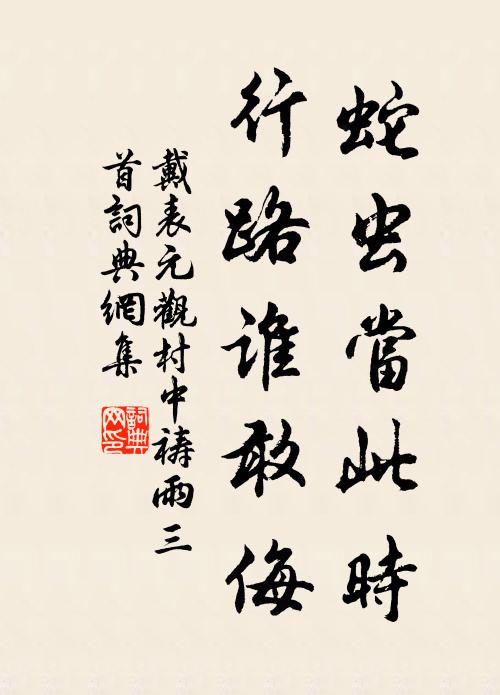 蛇虫當此時
行路誰敢侮
戴表元觀村中禱雨三
首詞典網集
詞典网印